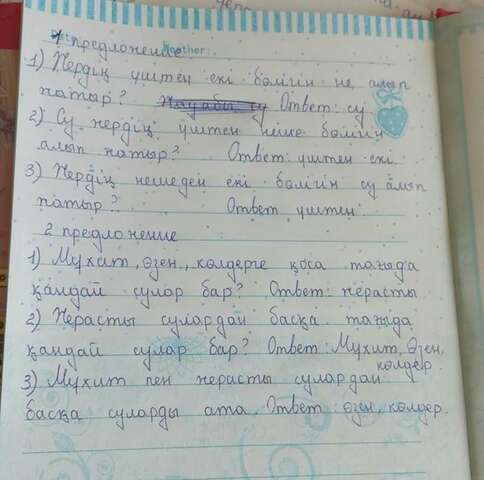 1 предложение
1) Жердің үштен екі бөлігін не алып
жатыр? Жауабы су Ответ: су
2) Су жердің үштен неше бөлігін
алып жатыр? Ответ: үштен екі
3) Жердің нешеден екі бөлігін су алып
жатыр? Ответ үштен
2 предложение
1) Мұхит, өзен, көлдерге қоса тағыда
қандай сулар бар? Ответ: жерасты
2) Жерасты сулардан басқа тағыда
қандай сулар бар? Ответ: Мұхит, Өзен,
көлдер
3) Мұхит пен жерасты сулардан
басқа суларды ата. Ответ: өзен, көлдер.